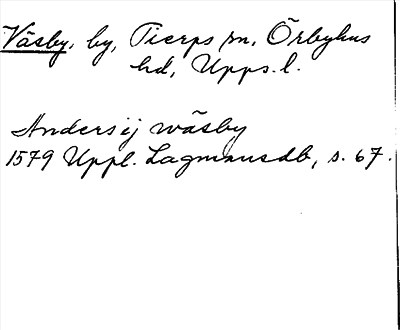 Väsby, by, Tierps sn, Örbyhus
hd, Upps. l.
Anders ij wäsby
1579 Uppl. Lagmansdb, s. 67.